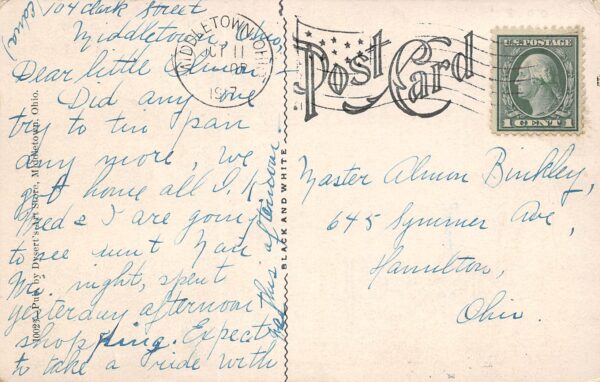 104 Clark Street
Middletown, Ohio,
Dear little Almon –
Did any one
try to tin pan
any more, We
got home all O.K
Med & I are going
to see aunt Nan
Mr. night, spent
yesterday afternoon
shopping. Expect
to take a ride with
this afternoon.
(Edna)
MIDDLETOWN, OHIO
OCT 11
1917
Post Card
U.S. POSTAGE
1 CENT 1
Master Almon Binkley,
645 Symmer Ave,
Hamilton,
Ohio.
BLACK AND WHITE
Pub. by Dysert's Art Store, Middletown, Ohio.